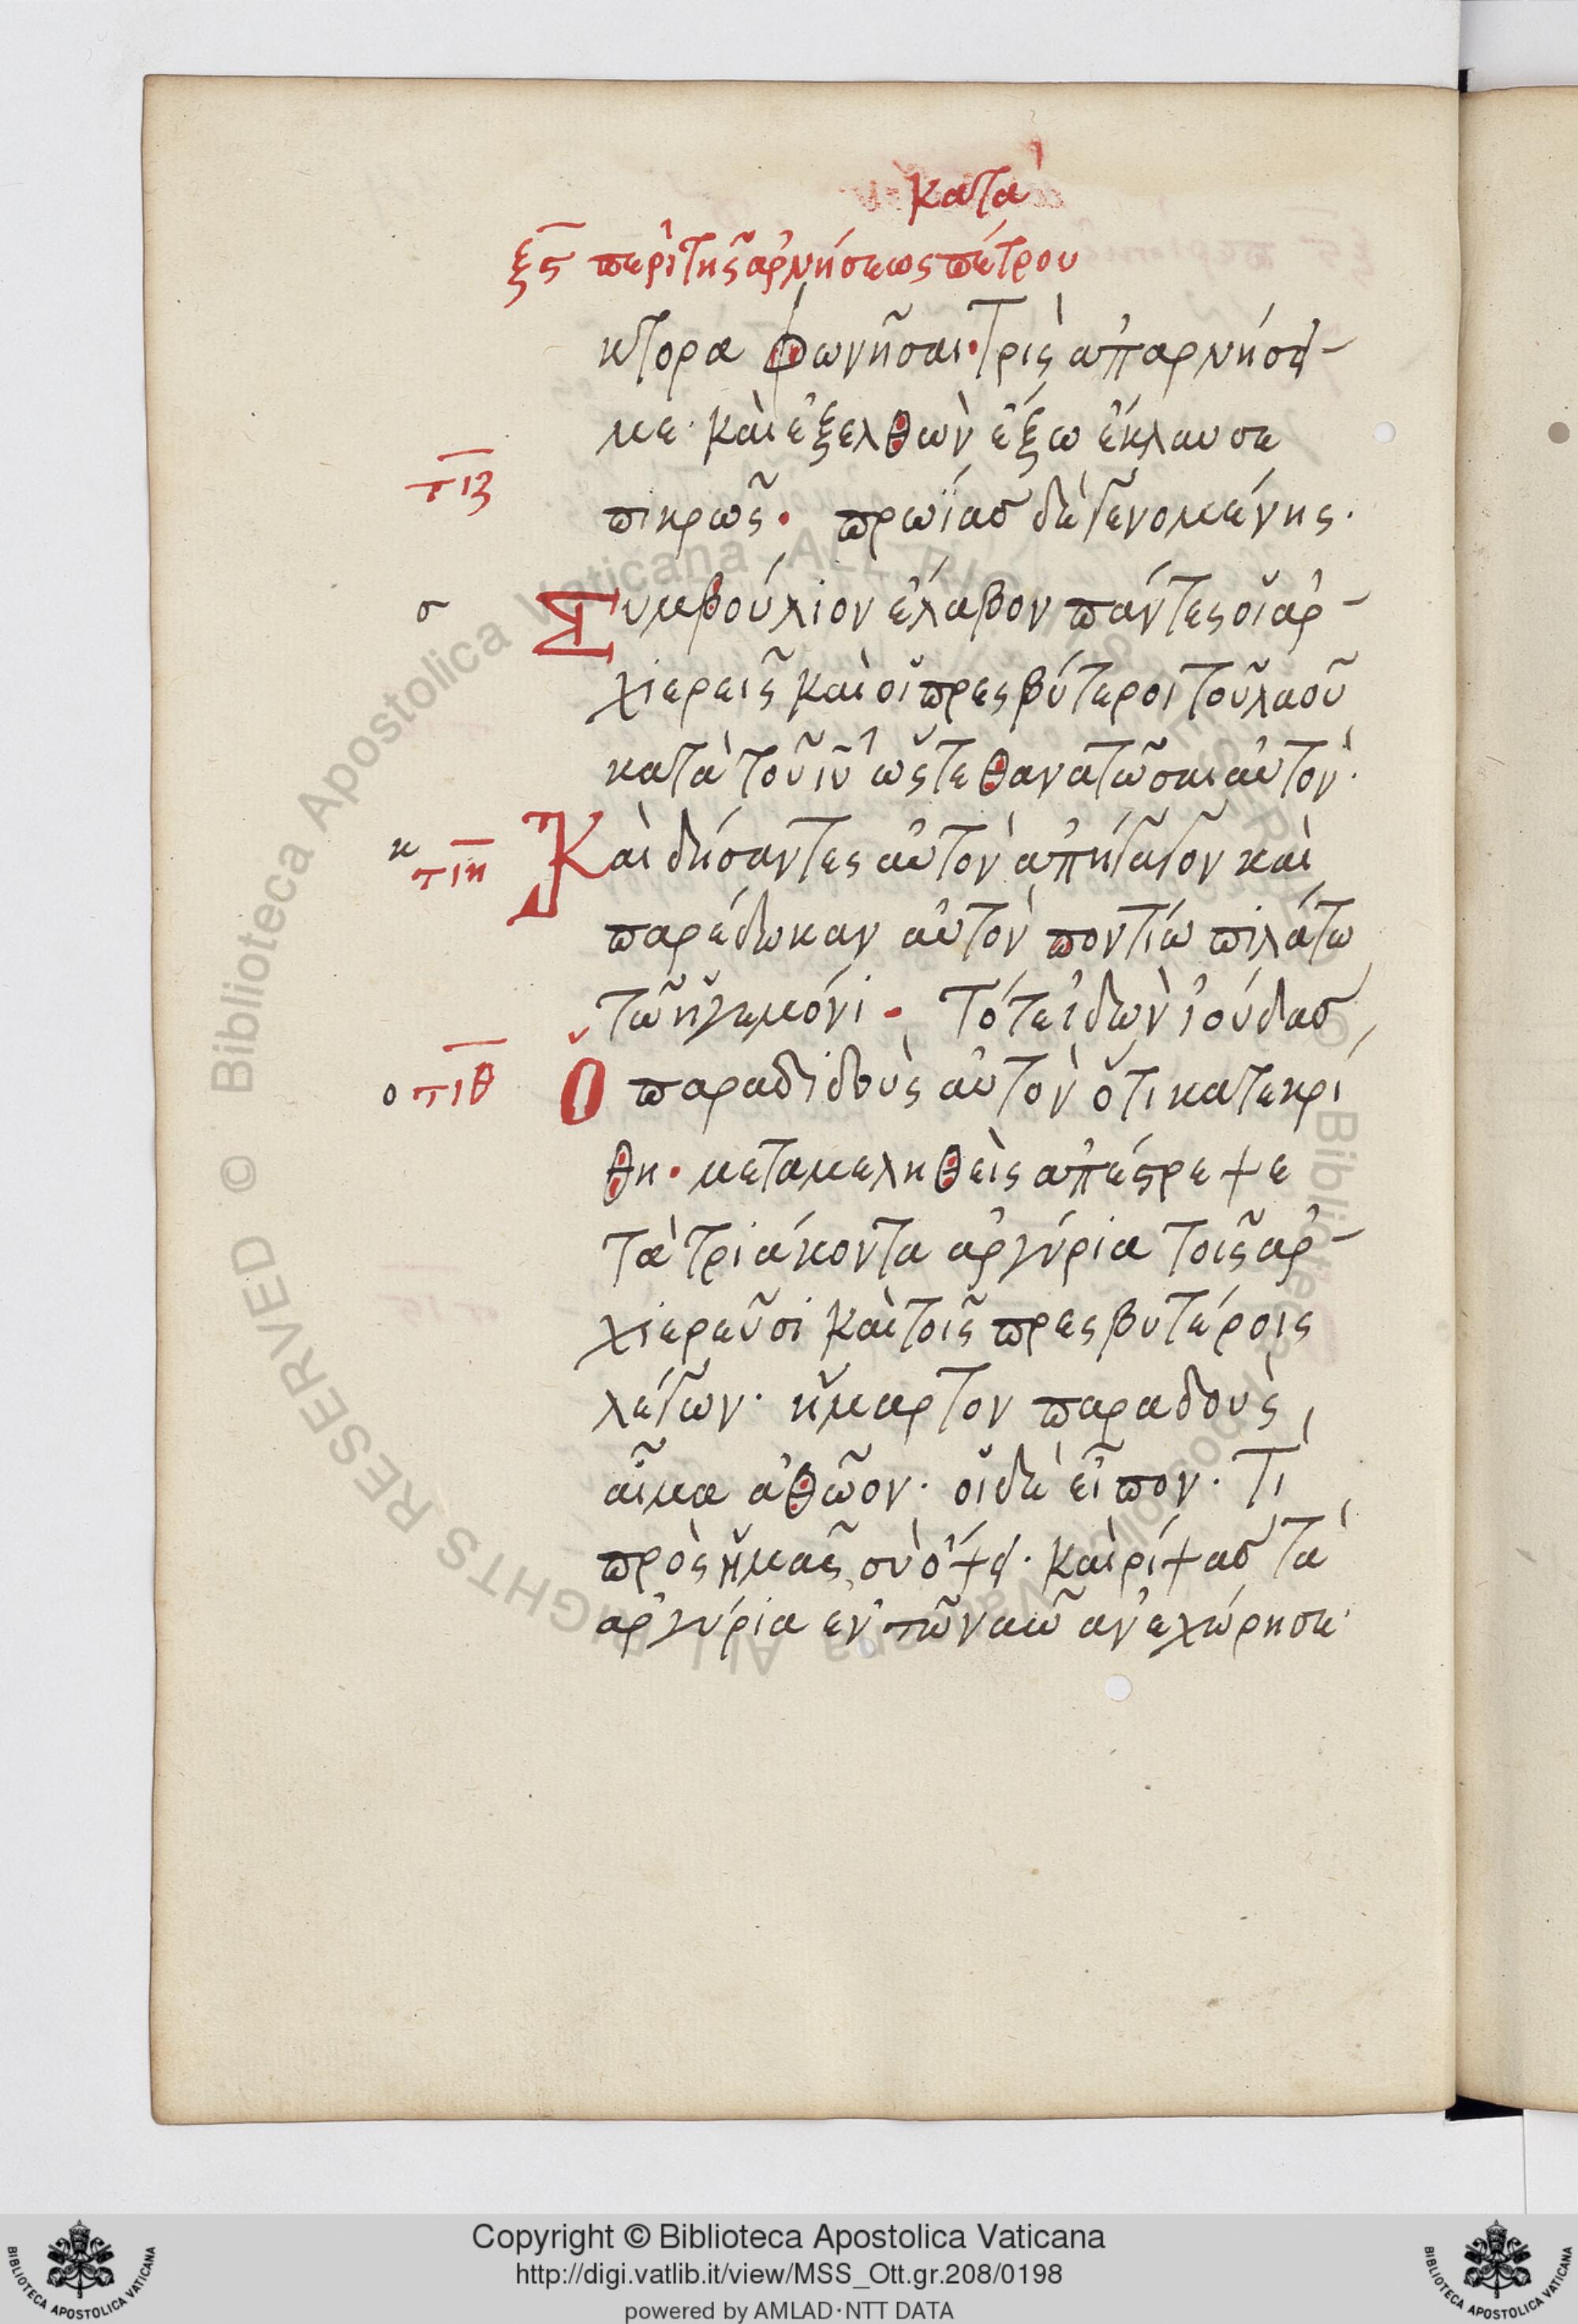 κατὰ
ξϛ περὶ τῆς ἀρνήσεως πέτρου
κτορα φωνῆσαι· τρὶς ἀπαρνήσῃ
με· καὶ ἐξελθὼν ἔξω ἔκλαυσε
τιζ
πικρῶς· πρωΐας δὲ γενομένης·
σ Συμβούλιον ἔλαβον πάντες οἱ ἀρ-
χιερεῖς καὶ οἱ πρεσβύτεροι τοῦ λαοῦ
κατὰ τοῦ ιυ ὥστε θανατῶσαι αὐτόν·
κ τιη Καὶ δήσαντες αὐτὸν ἀπήγαγον καὶ
παρέδωκαν αὐτὸν ποντίω πιλάτω
τῶ ἡγεμόνι· Τότε ἰδὼν ἰούδας
ο τιθ Ὁ παραδιδοὺς αὐτὸν ὅτι κατεκρί
θη· μεταμεληθεὶς ἀπέστρεψε
τὰ τριάκοντα ἀργύρια τοῖς ἀρ-
χιερεῦσι καὶ τοῖς πρεσβυτέροις
λέγων· ἥμαρτον παραδοὺς
αἷμα ἀθῶον· οἱ δὲ εἶπον· Τί
πρὸς ἡμᾶς, σὺ ὄψη· καὶ ρίψας τὰ
ἀργύρια ἐν τῶ ναῶ ἀνεχώρησε·
© Biblioteca Apostolica Vaticana ALL RIGHTS RESERVED
© Biblioteca Apostolica Vaticana ALL RIGHTS RESERVED
Copyright © Biblioteca Apostolica Vaticana
http://digi.vatlib.it/view/MSS_Ott.gr.208/0198
powered by AMLAD·NTT DATA
BIBLIOTECA APOSTOLICA VATICANA
BIBLIOTECA APOSTOLICA VATICANA